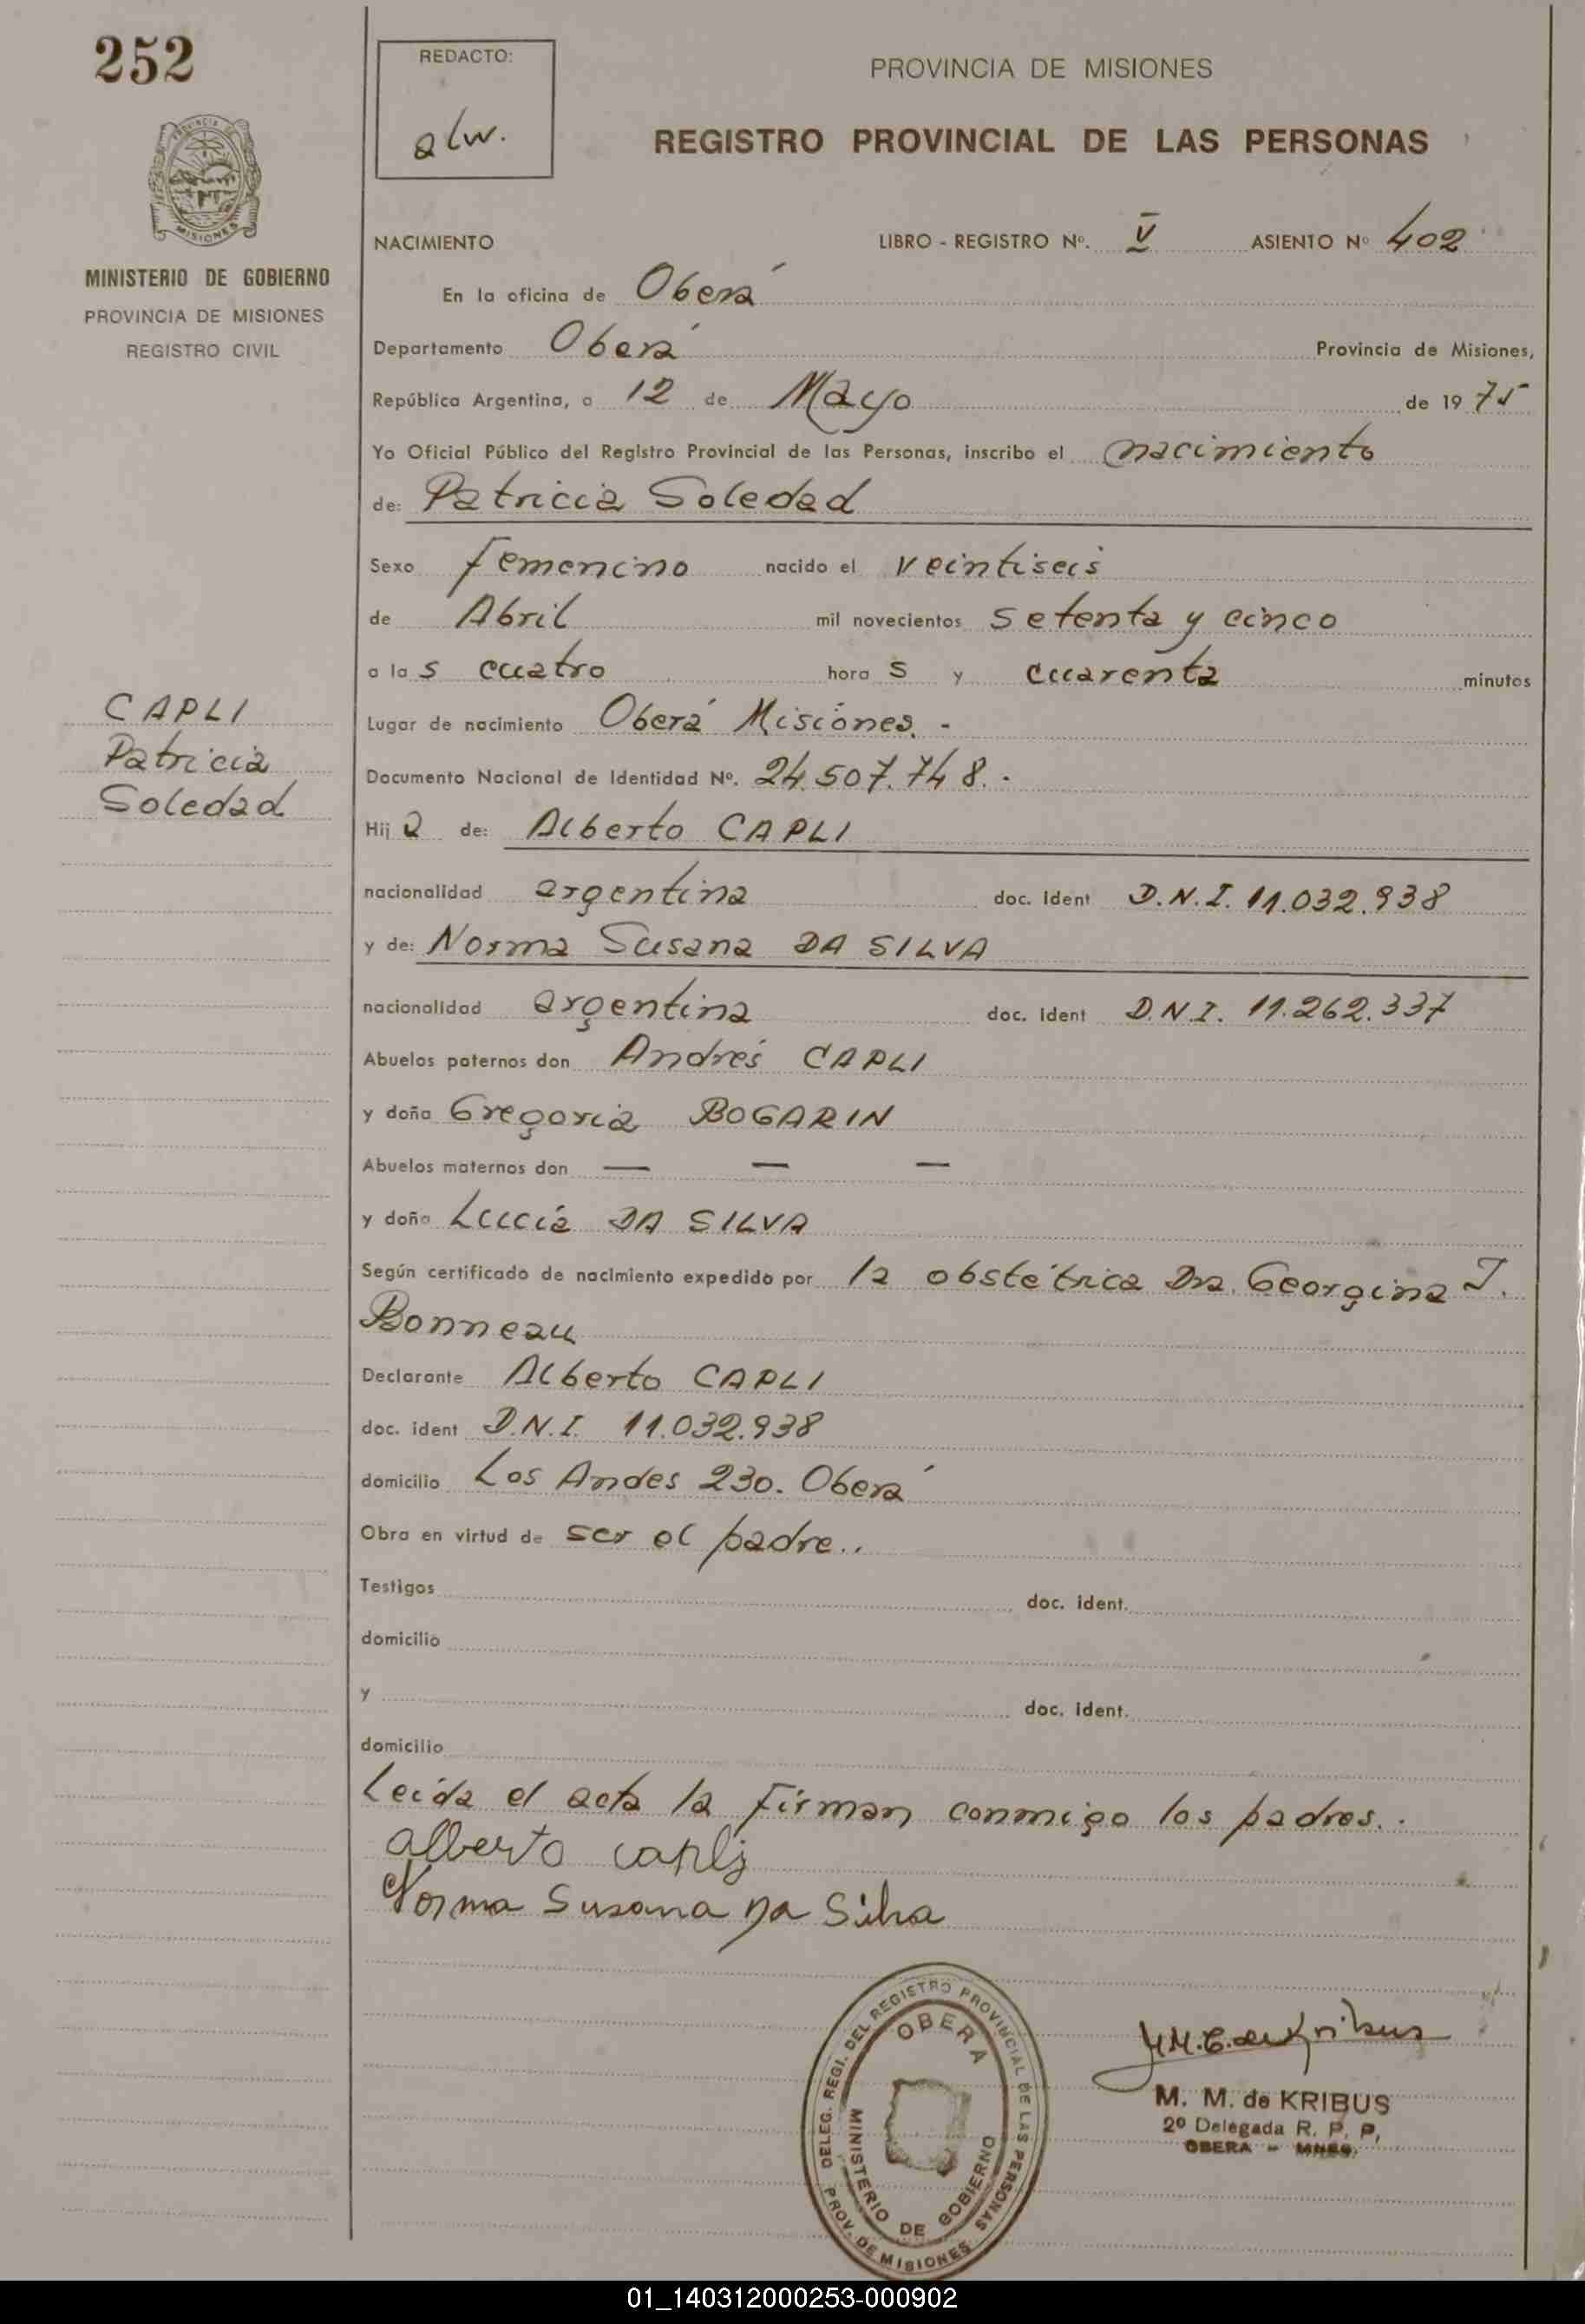 252
REDACTO:
alw.
PROVINCIA DE MISIONES
REGISTRO PROVINCIAL DE LAS PERSONAS
PROVINCIA DE
MISIONES
MINISTERIO DE GOBIERNO
PROVINCIA DE MISIONES
REGISTRO CIVIL
NACIMIENTO LIBRO - REGISTRO Nº. V ASIENTO Nº 402
En la oficina de Oberá
Departamento Oberá Provincia de Misiones,
República Argentina, a 12 de Mayo de 1975
Yo Oficial Público del Registro Provincial de las Personas, inscribo el nacimiento
de: Patricia Soledad
Sexo femenino nacido el veintiseis
de Abril mil novecientos setenta y cinco
a las cuatro horas y cuarenta minutos
CAPLI
Patricia
Soledad
Lugar de nacimiento Oberá Misiones. -
Documento Nacional de Identidad Nº. 24.507.748.-
Hija de: Alberto CAPLI
nacionalidad argentina doc. ident D.N.I. 11.032.938
y de: Norma Susana DA SILVA
nacionalidad argentina doc. ident D.N.I. 11.262.337
Abuelos paternos don Andrés CAPLI
y doña Gregoria BOGARIN
Abuelos maternos don — — —
y doña Lucía DA SILVA
Según certificado de nacimiento expedido por la obstétrica Dra. Georgina I.
Bonneau
Declarante Alberto CAPLI
doc. ident D.N.I. 11.032.938
domicilio Los Andes 230. Oberá
Obra en virtud de ser el padre..
Testigos doc. ident.
domicilio
y doc. ident.
domicilio
Leída el acta la firman conmigo los padres..
alberto capli
Norma Susana Da Silva
DELEG. REGI. DEL REGISTRO PROVINCIAL DE LAS PERSONAS
OBERA
MINISTERIO DE GOBIERNO
PROV. DE MISIONES
M. M. de KRIBUS
2º Delegada R. P. P,
OBERA - MNES.
01_140312000253-000902